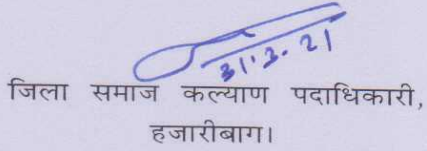 31.3.21
जिला समाज कल्याण पदाधिकारी,
हजारीबाग।